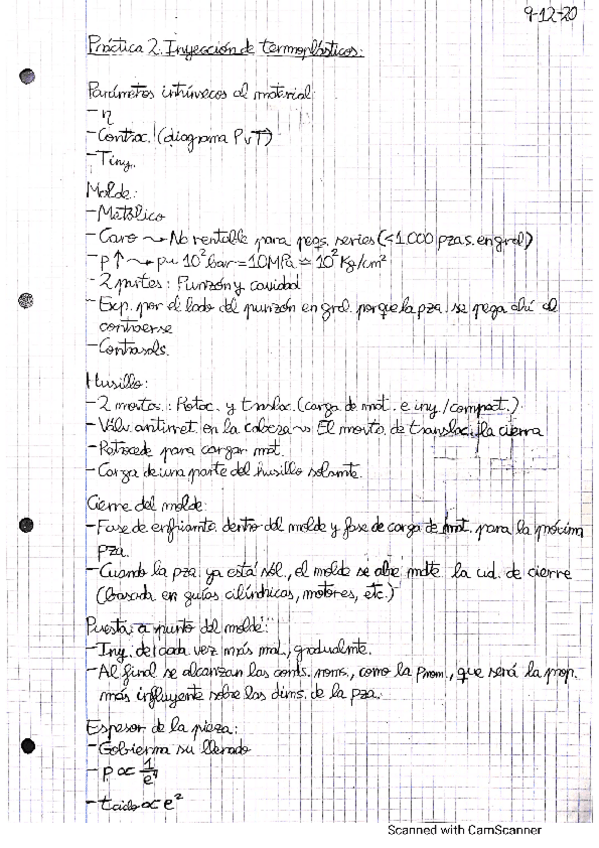 9-12-20
Práctica 2. Inyección de termoplásticos.
Parámetros intrínsecos al material:
- η
- Contrac. (diagrama PvT)
- Tiny.
Molde:
- Metálico
- Caro ⤳ No rentable para peqs. series (<1.000 pzas. en gral)
- P↑ ⤳ p ~ 10² bar = 10MPa ≃ 10² Kg/cm²
- 2 partes: Punzón y cavidad
- Exp. por el lado del punzón en gral. porque la pza. se pega ahí al
contraerse
- Contrasals.
Husillo:
- 2 movtos.: Rotac. y traslac. (carga de mat. e iny./compact.)
- Válv. antirret. en la cabeza ⤳ El movto. de translac. la cierra
- Retrocede para cargar mat.
- Carga de una parte del husillo solamte.
Cierre del molde:
- Fase de enfriamto. dentro del molde y fase de carga de mat. para la próxima
pza.
- Cuando la pza. ya está sól., el molde se abre mdte. la ud. de cierre
(basada en guías cilíndricas, motores, etc.)
Puesta a punto del molde:
- Iny. de cada vez más mat., gradualmte.
- Al final se alcanzan las conds. noms., como la Pnom., que será la prop.
más influyente sobre las dims. de la pza.
Espesor de la pieza:
- Gobierna su llenado
- P ∝ 1/e⁴
- tciclo ∝ e²
Scanned with CamScanner